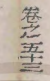 卷之五十三